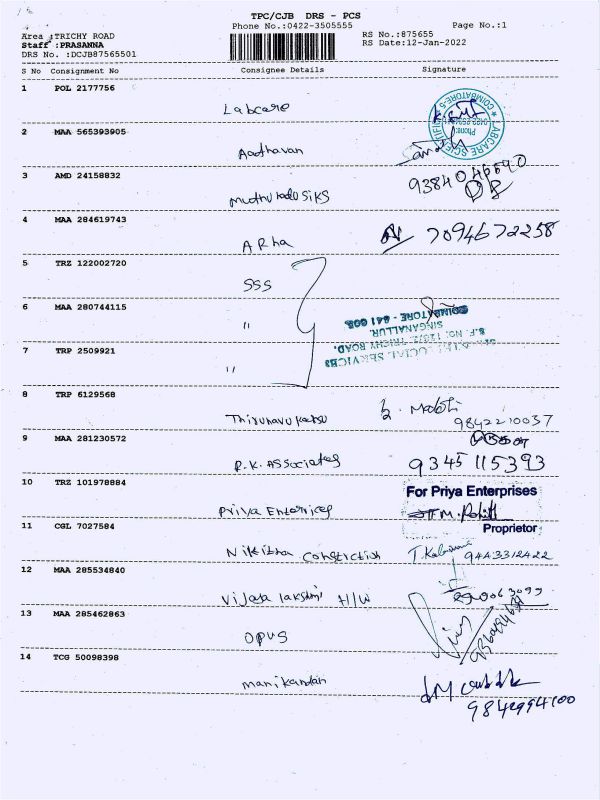 TPC/CJB DRS - PCS
Phone No.:0422-3505555
Page No.:1
Area :TRICHY ROAD
Staff :PRASANNA
DRS No. :DCJB87565501
RS No.:875655
RS Date:12-Jan-2022
S No Consignment No Consignee Details Signature
1 POL 2177756 Labcare
2 MAA 565393905 Aadhavan
3 AMD 24158832
9384046690
4 MAA 284619743 ARha 7094672258
5 TRZ 122002720 SSS
6 MAA 280744115 "
COIMBATORE - 641 005
SINGANALLUR.
S.F. NO: 123/2, TRICHY ROAD,
SOCIAL SERVICES
7 TRP 2509921 "
8 TRP 6129568 Thirunavukarsu
9842210037
9 MAA 281230572 R.K. Associates 9345115393
10 TRZ 101978884 Priya Enterprices
For Priya Enterprises
Proprietor
11 CGL 7027584 Nikitha Constrction 9443312422
12 MAA 285534840 Vijaya lakshmi H/W
13 MAA 285462863 OPUS
14 TCG 50098398 Manikandan
9842994100